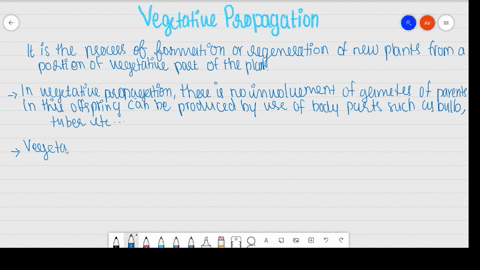 Vegetative Propagation
It is the process of formation or regeneration of new plants from a
portion of vegetative part of the plant
→ In vegetative propagation, there is no involvement of gametes of parents
In this offspring can be produced by use of body parts such as bulb,
tuber etc...
→ Vegeta